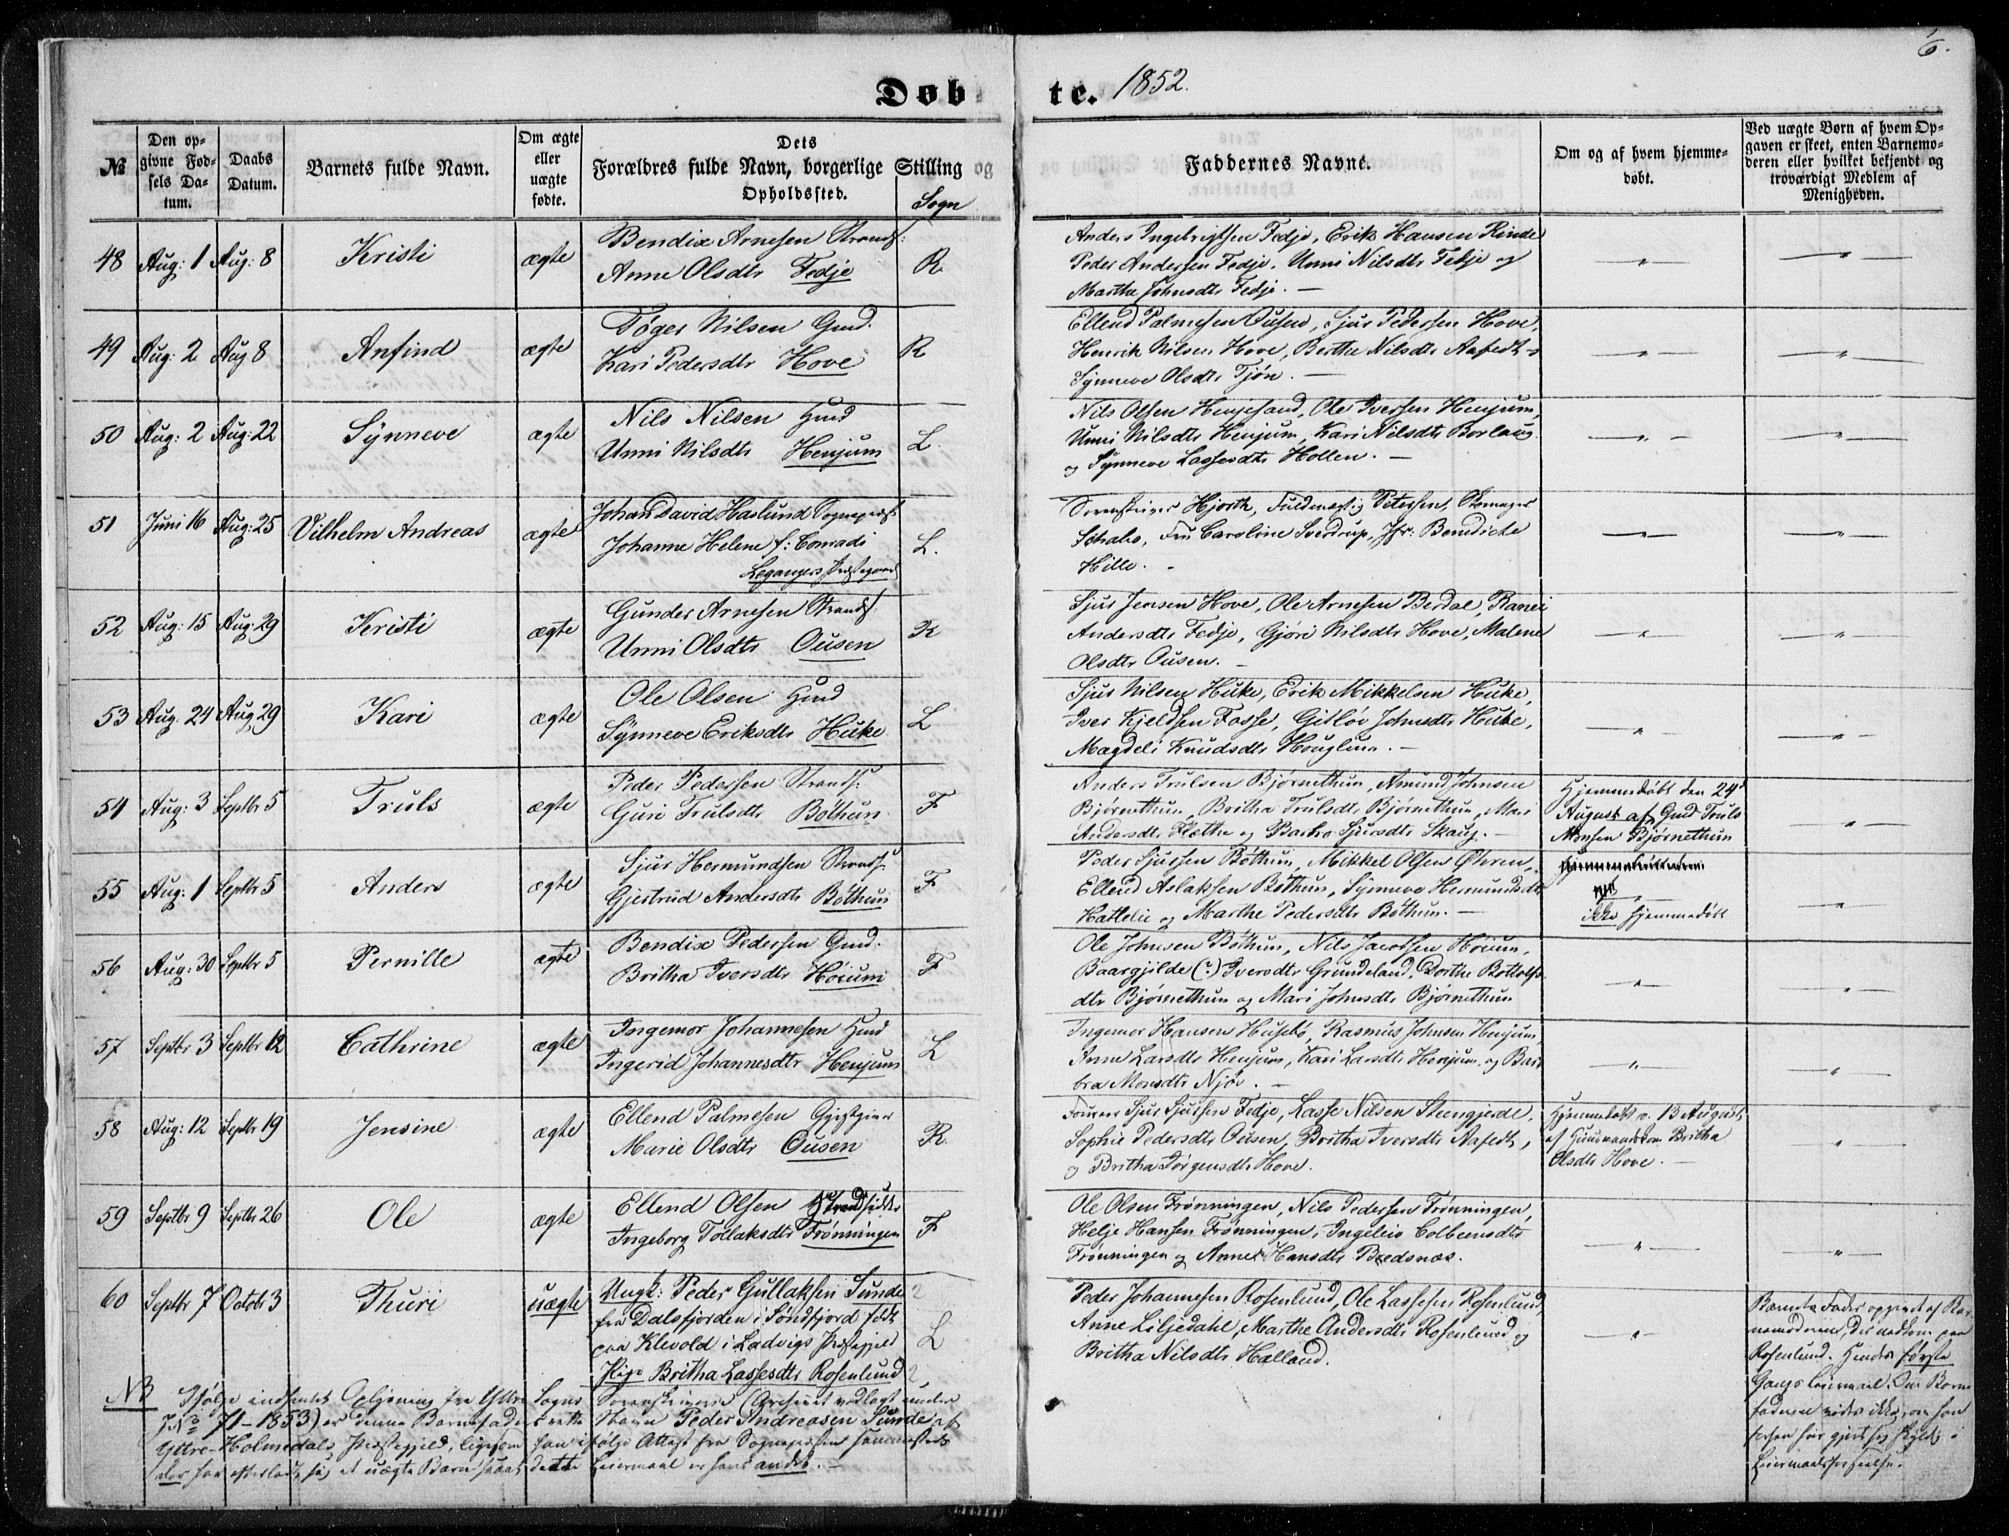 6.
Døbte. 1852.
№
Den opgivne Fødsels Datum.
Daabs Datum.
Barnets fulde Navn.
Om ægte eller uægte fødte.
Dets Forældres fulde Navn, borgerlige Stilling og Opholdssted.
Sogn
Faddernes Navne.
Om og af hvem hjemmedøbt.
Ved uægte Børn af hvem Opgaven er skeet, enten Barnemoderen eller hvilket bekjendt og troværdigt Medlem af Menigheden.
48 Aug: 1 Aug: 8 Kristi ægte
Bendix Arnesen Strands:
Anne Olsdtr Fedje R
Anders Ingebrigtsen Fedje, Erik Hansen Rinde
Peder Andersen Fedje, Unni Nilsdtr Fedje og
Marthe Johnsdtr Fedje. —
49 Aug: 2 Aug 8 Anfind ægte
Tøger Nilsen Gmd.
Kari Pedersdtr Hove R
Ellend Palmesen Ousen, Sjur Pedersen Hove,
Henrik Nilsen Hove, Brithe Nilsdtr Aafedt
Synneve Olsdtr Tjøn. —
50 Aug: 2 Aug: 22 Synneve ægte
Nils Nilsen Hmd
Unni Nilsdtr Henjum L.
Nils Olsen Henjesand, Ole Iversen Henjum,
Unni Nilsdtr Henjum, Kari Nilsdtr Borlaug
og Synneve Lassesdtr Hollen. —
51 Juni 16 Aug: 25 Vilhelm Andreas ægte
Johan David Haslund Sognepræst
Johanne Helene f: Conradi
Leganger Præstegaard L.
Sorenskriver Hjorth, Fuldmægtig Petersen,
Fru Caroline Sverdrup, Jfr: Benedicte
Hille. -
52 Aug: 15 Aug: 29 Kristi ægte
Gunder Arnesen Strands
Unni Olsdtr Ousen R
Sjur Jensen Hove, Ole Arnesen Berdal, Ranei
Andersdtr Fedje, Gjøri Nilsdtr Hove, Malene
Olsdtr Ousen. —
53 Aug. 24 Aug 29 Kari ægte
Ole Olsen Hmd
Synneve Eriksdtr Huke L
Sjur Nilsen Huke, Erik Mikkelsen Huke,
Iver Kjeldsen Fosse, Gitløv Johnsdtr Huke,
Magdeli Knudsdtr Houglum. —
54 Aug: 3 Septbr 5 Truls ægte
Peder Pedersen Strands:
Guri Trulsdtr Bøthun F
Anders Trulsen Bjørnethun, Amund Johnsen
Bjørnethun, Britha Trulsdt, Bjørnethun, Mari
Andersdtr Fløthe og Barbro Sjursdtr Skaug. —
Hjemmedøbt den 24d
August af Gmd Truls
Monsen Bjørnethun
55 Aug: 1 Septbr 5 Anders ægte
Sjur Hermundsen Strands:
Gjertrud Andersdtr Bøthun F
Peder Sjursen Bøthun, Mikkel Olsen Øhren,
Ellend Aslaksen Bøthun, Synneve Hermundsdtr
Hattelie og Marthe Pedersdtr Bøthum. —
ikke hjemmedøbt
56 Aug: 30 Septbr 5 Pernille ægte
Bendix Pedersen Gmd.
Britha Iversdtr Høium F
Ole Johnsen Bøthun, Nils Jacobsen Høium,
Baargjilde (?) Iversdtr Grundeland, Dorthe Bottolfs
dtr Bjørnethun og Mari Johnsdtr Bjørnethun
57 Septbr 3 Septbr 12 Cathrine ægte
Ingemor Johannesen Hmd
Ingerid Johannesdtr Henjum L
Ingemor Hansen Husebø, Rasmus Johnsen Henjum,
Anne Larsdtr Henjum, Kari Larsdtr Henjum, og Bar
bra Monsdtr Njøs. —
58 Aug: 12 Septbr 19 Jensine ægte
Ellend Palmesen Gjestgiver
Marie Olsdtr Ousen R.
Sjur Sjursen Fedje, Lasse Nilsen Steengjerde,
Sophie Pedersdtr Ousen, Britha Iversdtr Aafedt,
og Britha Jørgensdtr Hove.
Hjemmedøbt d. 13 August
af Huusmandskone Britha
Olsdtr Hove. —
59 Septbr 9 Septbr 26 Ole ægte
Ellend Olsen Strandsidder
Ingeborg Tollaksdtr Frønningen F
Ole Olsen Frønningen, Nils Pedersen Frønningen,
Helje Hansen Frønningen, Ingeleiv Colbeensdtr
Frønningen og Anne Hansdtr Bredsnæs.
60 Septbr 7 Octobr 3 Thuri uægte
Ungk: Peder Gullaksen Sunde
fra Dalsfjorden i Søndfjord født
paa Klevold i Ladvigs Præstegjeld
Pige Britha Lassesdtr Rosenlund L
Peder Johannesen Rosenlund, Ole Lassesen Rosenlund
Anne Liljedahl, Marthe Andersdtr Rosenlund og
Britha Nilsdtr Hælland.
Barnets Fader opgivet af Bar
nemoderen, der nedkom paa
Rosenlund. Hendes første
Gangs Leiermaal. Om Barne
faderen vides ikke, om han
forhen har gjort sig skyldig i
Leiermaalsforseelse.
NB Ifølge indhentet Oplysning fra Yttre Sogns Sorenskriverie
(J. № 71 - 1853) er denne Barnefaders rette Navn Peder Andreasen Sunde af
Yttre-Holmedals Præstegjeld, ligesom han ifølge Attest fra Sognepræsten sammesteds
der har efterladt sig et uægte Barn, saaat dette Leiermaal er hans andet. —